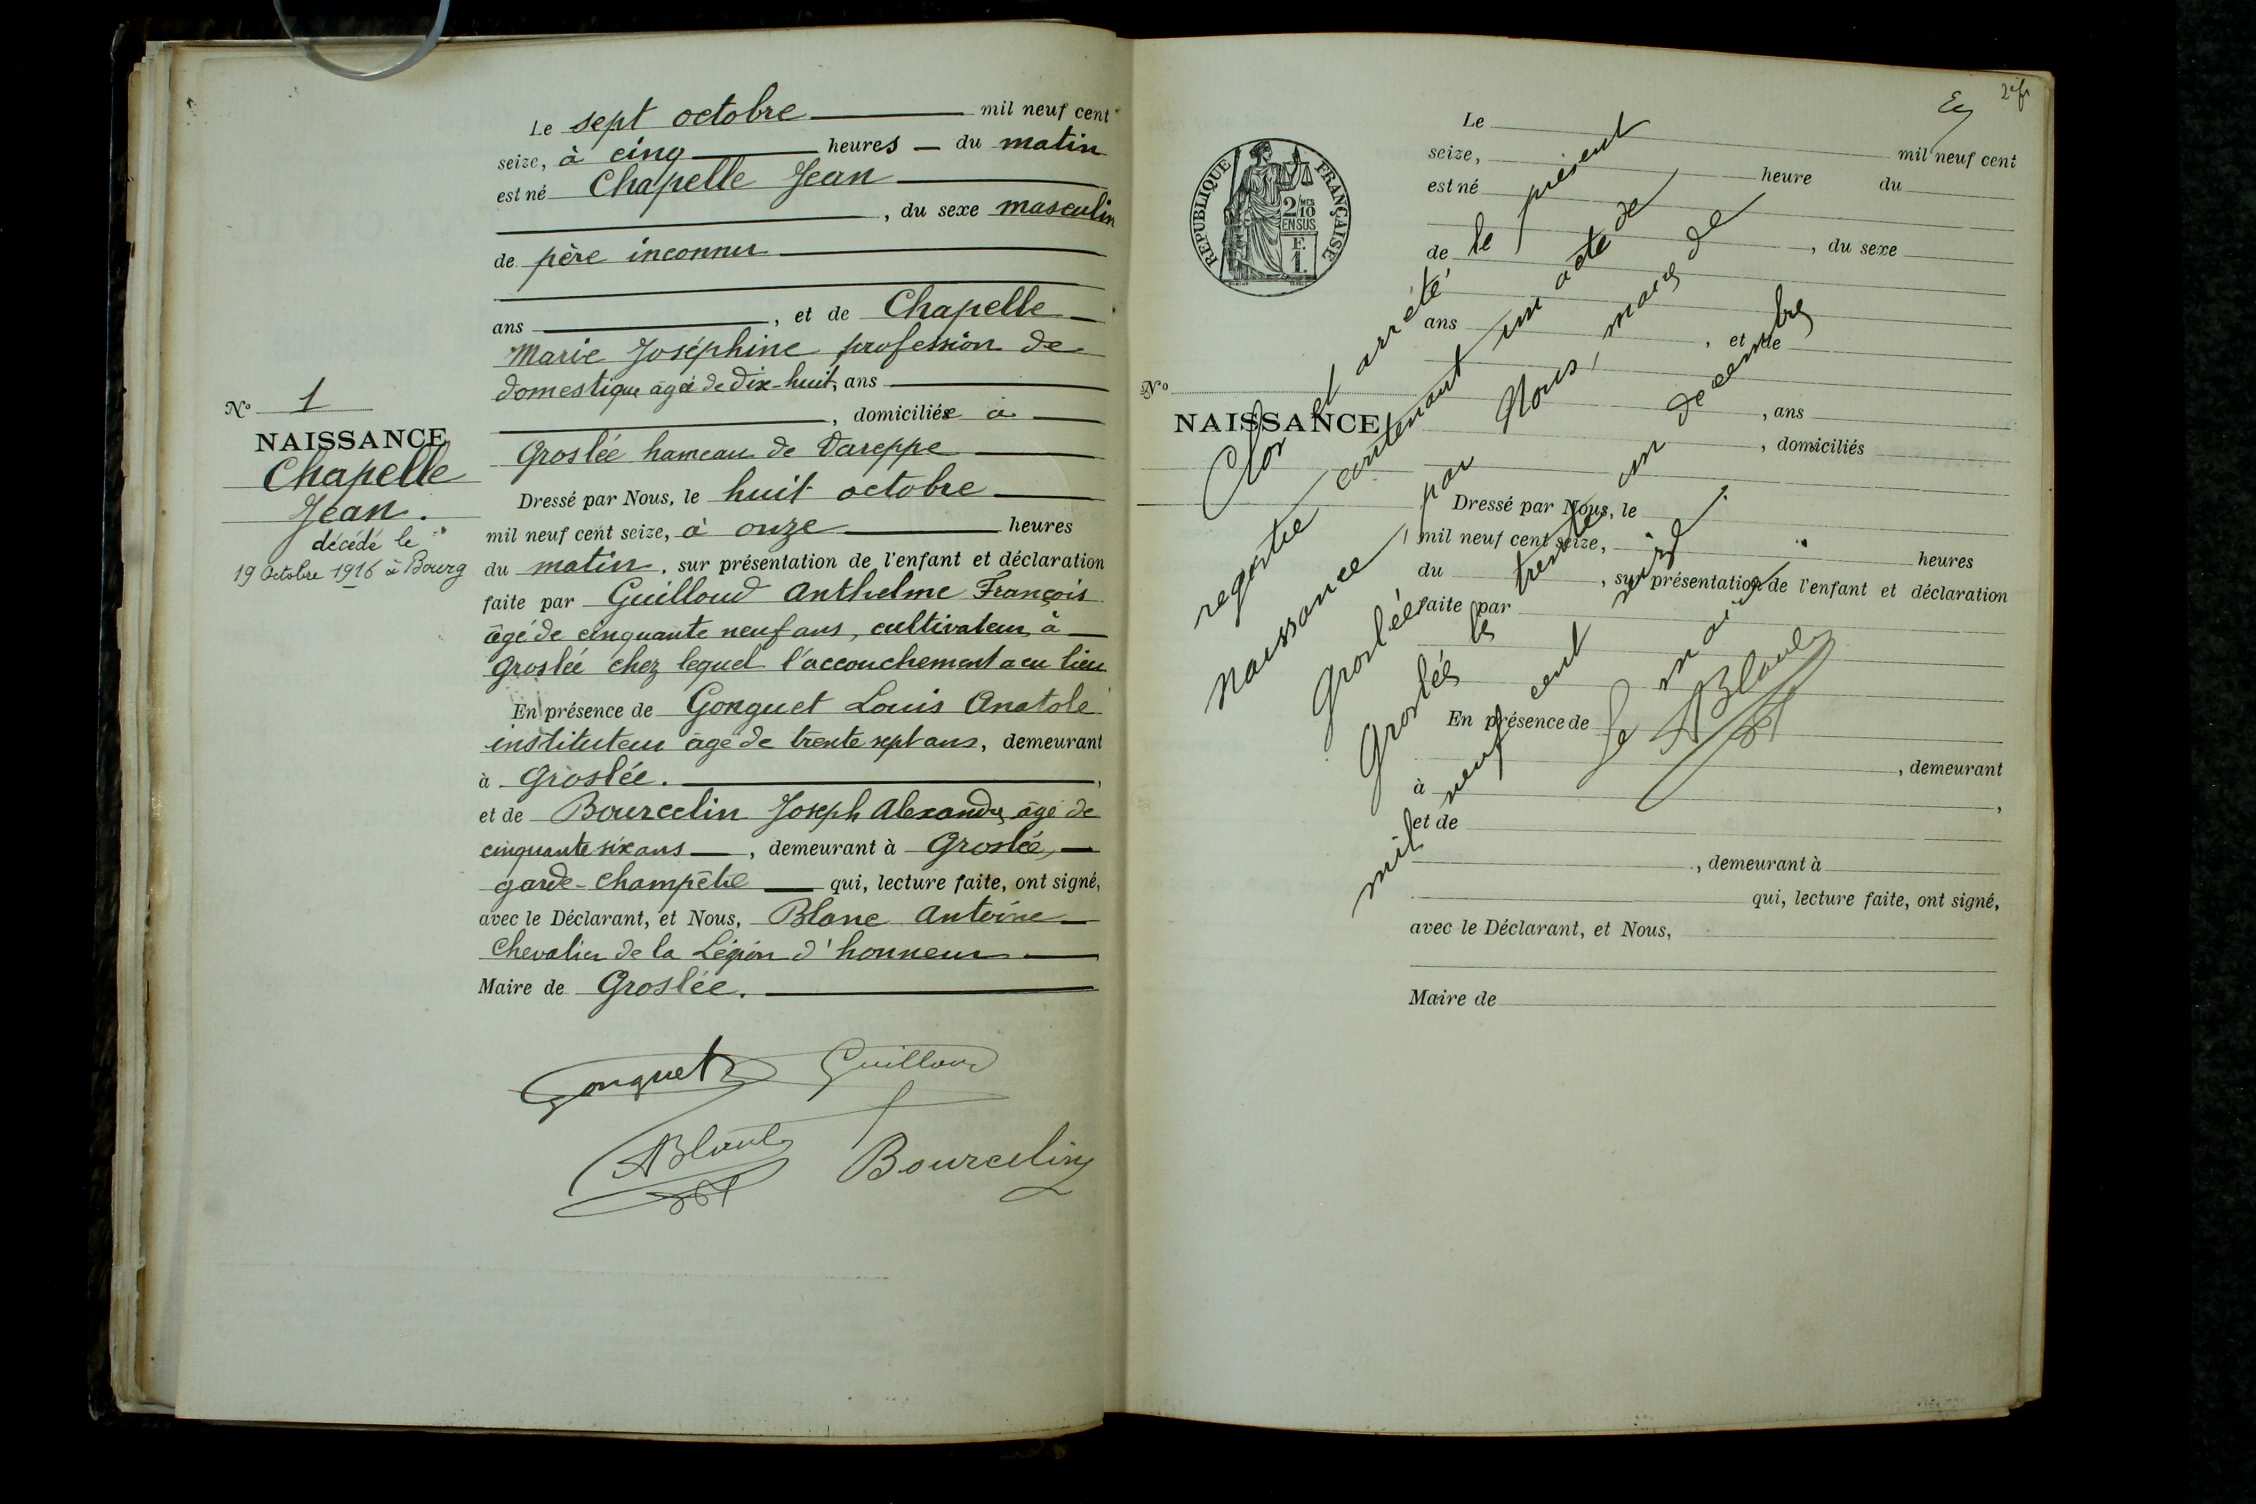 Le sept octobre mil neuf cent
seize, à cinq heures du matin
est né Chapelle Jean
, du sexe masculin
de père inconnu
ans , et de Chapelle
Marie Joséphine profession de
domestique âgée de dix-huit, ans
, domiciliée à
Groslée hameau de Vareppe
Dressé par Nous, le huit octobre
mil neuf cent seize, à onze heures
du matin, sur présentation de l'enfant et déclaration
faite par Guilloud Anthelme François
âgé de cinquante neuf ans, cultivateur à
Groslée chez lequel l'accouchement a eu lieu
En présence de Gonguet Louis Anatole
instituteur âgé de trente sept ans, demeurant
à Groslée.
et de Bourcelin Joseph Alexandre, âgé de
cinquante six ans , demeurant à Groslée,
garde-champêtre qui, lecture faite, ont signé,
avec le Déclarant, et Nous, Blanc Antoine
Chevalier de la Légion d'honneur
Maire de Groslée.
N° 1
NAISSANCE
Chapelle
Jean.
décédé le
19 Octobre 1916 à Bourg
Gonguet Guilloud
ABlanc Bourcelin
2e f.
RÉPUBLIQUE FRANÇAISE
2/10 MES
EN SUS
E.
1.
N°
NAISSANCE
Le mil neuf cent
seize, heure du
est né
, du sexe
de
ans , et de
, ans
, domiciliés
Dressé par Nous, le
mil neuf cent seize, heures
du , sur présentation de l'enfant et déclaration
faite par
En présence de
, demeurant
à ,
et de
, demeurant à
qui, lecture faite, ont signé,
avec le Déclarant, et Nous,
Maire de
Clos et arrêté le présent
registre contenant un acte de
naissance, par Nous, maire de
Groslée
Groslée le trente un décembre
mil neuf cent seize.
Le maire
ABlanc